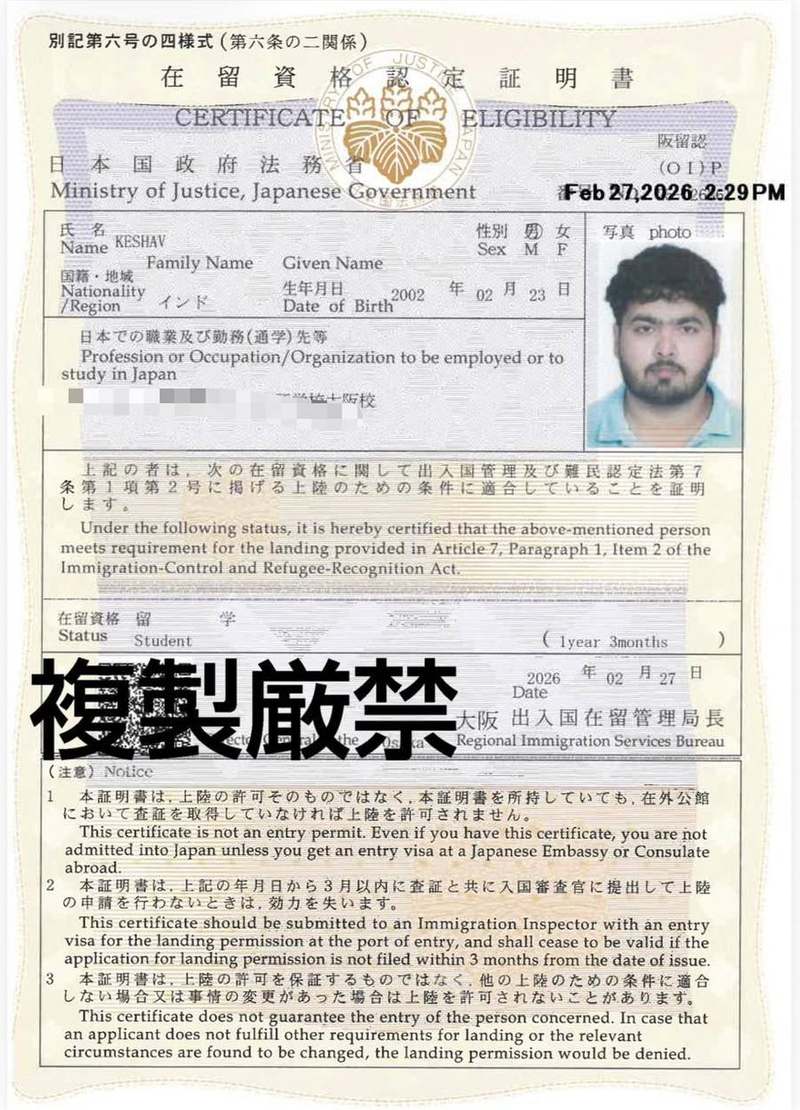 別記第六号の四様式(第六条の二関係)
在留資格認定証明書
CERTIFICATE OF ELIGIBILITY
MINISTRY OF JUSTICE JAPAN
阪留認
日本国政府法務省
(OI)P
Ministry of Justice, Japanese Government
Feb 27,2026 2:29PM
氏名
Name KESHAV
Family Name Given Name
性別 男 女
Sex M F
写真 photo
国籍・地域
Nationality
/Region インド
生年月日 2002 年 02 月 23 日
Date of Birth
日本での職業及び勤務(通学)先等
Profession or Occupation/Organization to be employed or to
study in Japan
大阪校
上記の者は、次の在留資格に関して出入国管理及び難民認定法第7
条第1項第2号に掲げる上陸のための条件に適合していることを証明
します。
Under the following status, it is hereby certified that the above-mentioned person
meets requirement for the landing provided in Article 7, Paragraph 1, Item 2 of the
Immigration-Control and Refugee-Recognition Act.
在留資格 留学
Status Student
( 1year 3months )
複製厳禁
2026 年 02 月 27 日
Date
大阪 出入国在留管理局長
the Osaka Regional Immigration Services Bureau
(注意) Notice
1 本証明書は、上陸の許可そのものではなく、本証明書を所持していても、在外公館
において査証を取得していなければ上陸を許可されません。
This certificate is not an entry permit. Even if you have this certificate, you are not
admitted into Japan unless you get an entry visa at a Japanese Embassy or Consulate
abroad.
2 本証明書は、上記の年月日から3月以内に査証と共に入国審査官に提出して上陸
の申請を行わないときは、効力を失います。
This certificate should be submitted to an Immigration Inspector with an entry
visa for the landing permission at the port of entry, and shall cease to be valid if the
application for landing permission is not filed within 3 months from the date of issue.
3 本証明書は、上陸の許可を保証するものではなく、他の上陸のための条件に適合
しない場合又は事情の変更があった場合は上陸を許可されないことがあります。
This certificate does not guarantee the entry of the person concerned. In case that
an applicant does not fulfill other requirements for landing or the relevant
circumstances are found to be changed, the landing permission would be denied.